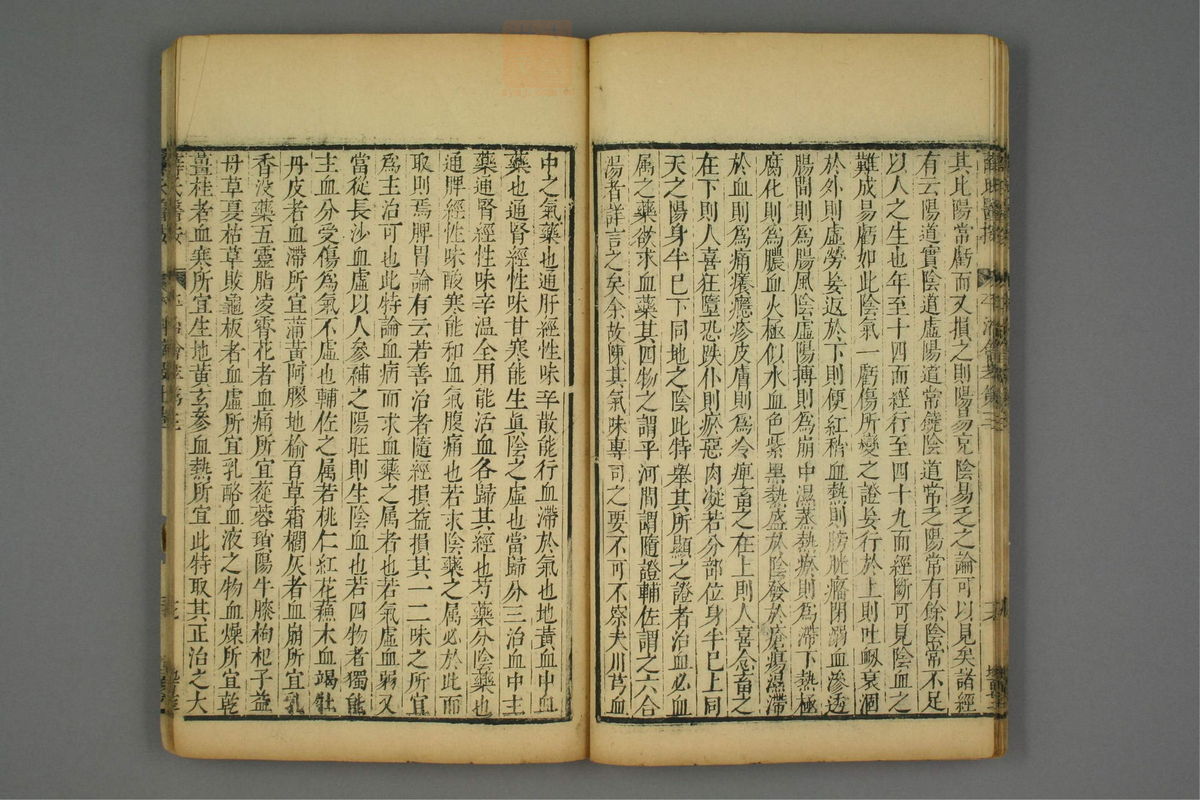 其比陽常虧而又損之則陽易亢陰易乏之論可以見矣諸經
有云陽道實陰道虛陽道常饒陰道常乏陽常有餘陰常不足
以人之生也年至十四而經行至四十九而經斷可見陰血之
難成易虧如此陰氣一虧傷所變之證妄行於上則吐衄衰涸
於外則虛勞妄返於下則便紅稍血熱則膀胱癃閉溺血滲透
腸間則為腸風陰虛陽搏則為崩中濕蒸熱瘀則為滯下熱極
腐化則為膿血火極似水血色紫黑熱盛於陰發於瘡瘍濕滯
於血則為痛癢癮疹皮膚則為冷痺畜之在上則人喜忘畜之
在下則人喜狂墮恐跌仆則瘀惡肉凝若分部位身半已上同
天之陽身半已下同地之陰此特舉其所顯之證者治血必血
属之藥欲求血藥其四物之謂乎河間謂隨證輔佐謂之六合
湯者詳言之矣余故陳其氣味專司之要不可不察夫川芎血
中之氣藥也通肝經性味辛散能行血滯於氣也地黃血中血
藥也通腎經性味甘寒能生眞陰之虛也當歸分三治血中主
藥通腎經性味辛温全用能活血各歸其經也芍藥分陰藥也
通脾經性味酸寒能和血氣腹痛也若求陰藥之属必於此而
取則焉脾胃論有云若善治者隨經損益損其一二味之所宜
為主治可也此特論血病而求血藥之属者也若氣虛血弱又
當從長沙血虛以人參補之陽旺則生陰血也若四物者獨能
主血分受傷為氣不虛也輔佐之属若桃仁紅花蘇木血竭牡
丹皮者血滯所宜蒲黃阿膠地榆百草霜櫚灰者血崩所宜乳
香没藥五靈脂凌霄花者血痛所宜蓯蓉瑣陽牛膝枸杞子益
母草夏枯草敗龜板者血虛所宜乳酪血液之物血燥所宜乾
薑桂者血寒所宜生地黃玄參血熱所宜此特取其正治之大